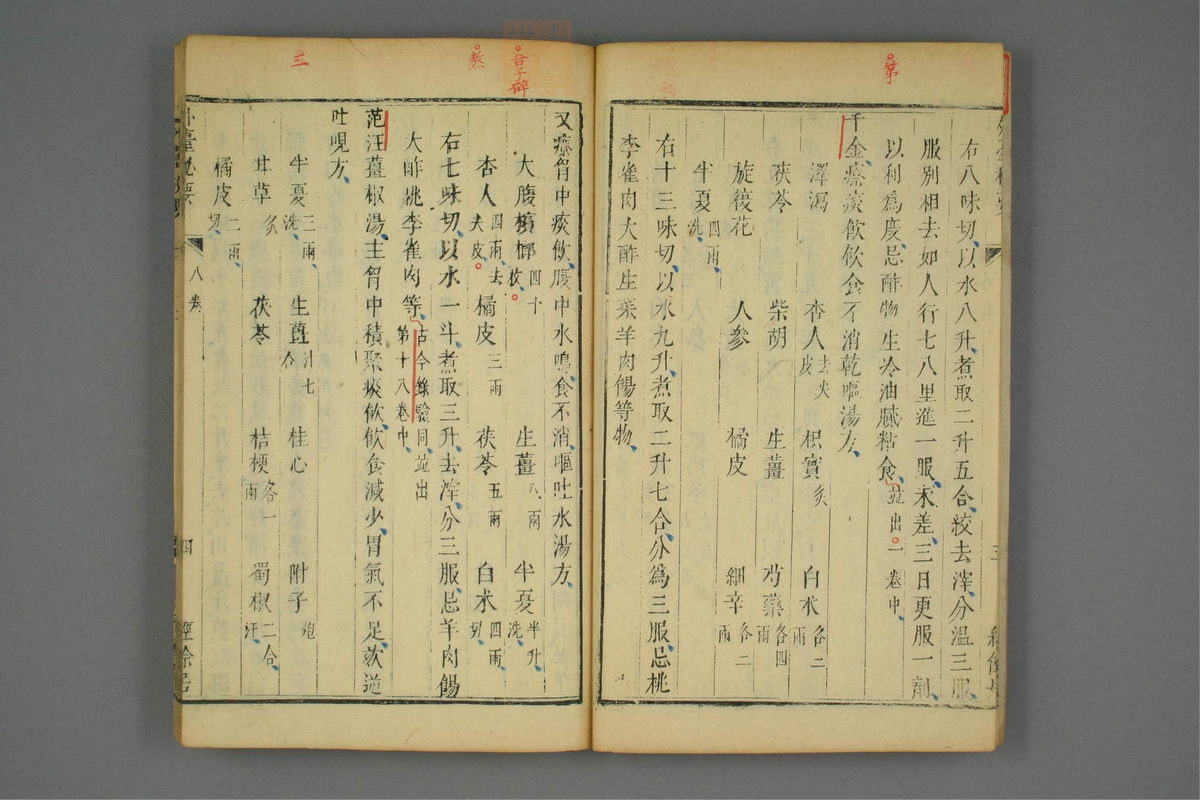 第
右八味切以水八升煮取二升五合絞去滓分溫三服
服別相去如人行七八里進一服未差三日更服一劑
以利爲度忌酢物生冷油膩粘食並出一卷中
千金療痰飲飲食不消乾嘔湯方
澤瀉 杏人去尖皮 枳實炙 白朮各二兩
茯苓 柴胡 生薑 芍藥各四兩
旋葍花 人參 橘皮 細辛各二兩
半夏四兩洗
右十三味切以水九升煮取二升七合分爲三服忌桃
李雀肉大酢生菜羊肉餳等物
合子碎
熬
三
又療胷中痰飲腹中水鳴食不消嘔吐水湯方
大腹檳榔四十枚 生薑八兩 半夏半升洗
杏人四兩去尖皮 橘皮三兩 茯苓五兩 白朮四兩切
右七味切以水一斗煮取三升去滓分三服忌羊肉餳
大酢桃李雀肉等古今錄驗同並出第十八卷中
范汪薑椒湯主胷中積聚痰飲飲食減少胃氣不足欬逆
吐哯方
半夏三兩洗 生薑汁七合 桂心 附子炮
甘草炙 茯苓 桔梗各一兩 蜀椒二合汗
橘皮二兩切
外臺祕要 八卷 四 經餘居